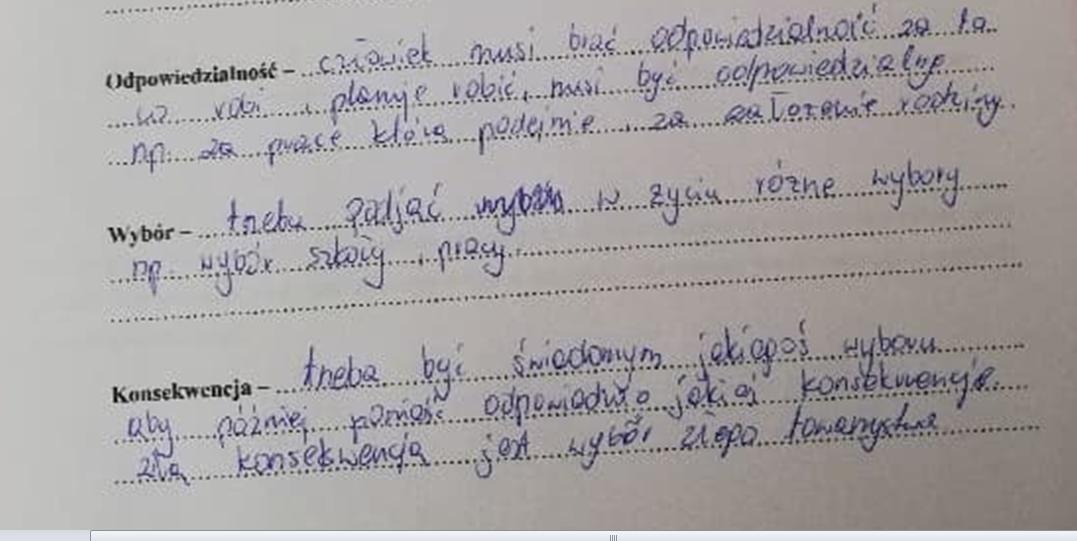 Odpowiedzialność – człowiek musi brać odpowiedzialność za to
co robi i planuje robić, musi być odpowiedzialny
np. za prace którą podejmie, za założenie rodziny.
Wybór – trzeba podjąć wybór w życiu różne wybory
np. wybór szkoły, pracy.
Konsekwencja – trzeba być świadomym jakiegoś wyboru
aby później ponieść jakiej konsekwencje
złą konsekwencją jest wybór złego towarzystwa